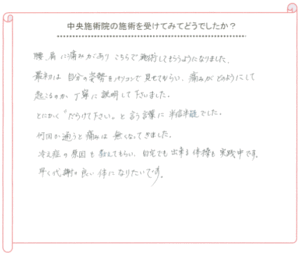 中央施術院の施術を受けてみてどうでしたか？
腰、肩に痛みがあり こちらで施術してもらうようになりました。
最初は 自分の姿勢をパソコンで 見せてもらい、痛みがどのようにして
起こるのか 丁寧に説明して下さいました。
とにかく “だらけて下さい” と言う言葉に 半信半疑でした。
何回か通うと 痛みは 無くなってきました。
冷え症の原因を教えてもらい、自宅でも出来る体操を実践中です。
早く代謝の良い体になりたいです。